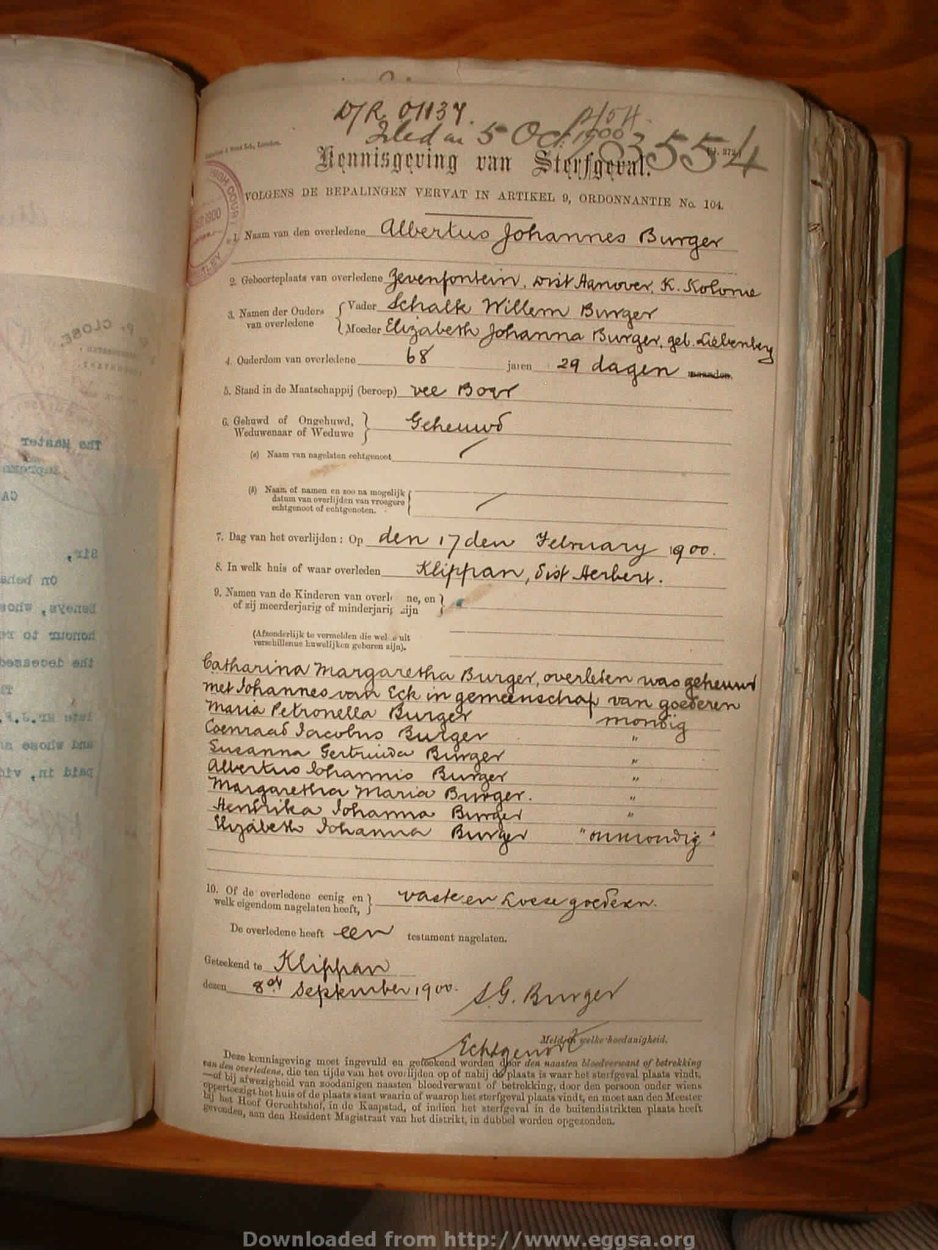 D/R 01137
Filed on 5 Oct. 1900
3554
Kennisgeving van Sterfgeval.
VOLGENS DE BEPALINGEN VERVAT IN ARTIKEL 9, ORDONNANTIE No. 104.
1. Naam van den overledene Albertus Johannes Burger
2. Geboorteplaats van overledene Zevenfontein, Dist Hanover, K. Kolonie
3. Namen der Ouders van overledene
Vader Schalk Willem Burger
Moeder Elizabeth Johanna Burger, geb. Liebenberg
4. Ouderdom van overledene 68 jaren 29 dagen maanden.
5. Stand in de Maatschappij (beroep) vee Boer
6. Gehuwd of Ongehuwd, Weduwenaar of Weduwe } Geheuwd
(a) Naam van nagelaten echtgenoot /
(b) Naam of namen en zoo na mogelijk
datum van overlijden van vroegere
echtgenoot of echtgenoten. /
7. Dag van het overlijden : Op den 17 den February 1900.
8. In welk huis of waar overleden Klippan, Dist Herbert.
9. Namen van de Kinderen van overle ne, en
of zij meerderjarig of minderjarig zijn
(Afzonderlijk te vermelden die wel e uit
verschillende huwelijken geboren zijn).
Catharina Margaretha Burger, overleden was geheuwd
met Johannes van Eck in gemeenschap van goederen
Maria Petronella Burger mondig
Coenraad Jacobus Burger "
Susanna Gertruida Burger "
Albertus Johannis Burger "
Margaretha Maria Burger. "
Hendrika Johanna Burger "
Elizabeth Johanna Burger "onmondig"
10. Of de overledene eenig en
welk eigendom nagelaten heeft, } vaste en Loese goederen.
De overledene heeft een testament nagelaten.
Geteekend te Klippan
dezen 8ste September 1900.
S.G. Burger
Meld in welke hoedanigheid.
Echtgenoot
Deze kennisgeving moet ingevuld en geteekend worden door den naasten bloedverwant of betrekking
van den overledene, die ten tijde van het overlijden op of nabij de plaats is waar het sterfgeval plaats vindt,
—of bij afwezigheid van zoodanigen naasten bloedverwant of betrekking, door den persoon onder wiens
oppertoezigt het huis of de plaats staat waarin of waarop het sterfgeval plaats vindt, en moet aan den Meester
bij het Hoof Gerechtshof, in de Kaapstad, of indien het sterfgeval in de buitendistrikten plaats heeft
gevonden, aan den Resident Magistraat van het distrikt, in dubbel worden opgezonden.
Downloaded from http://www.eggsa.org